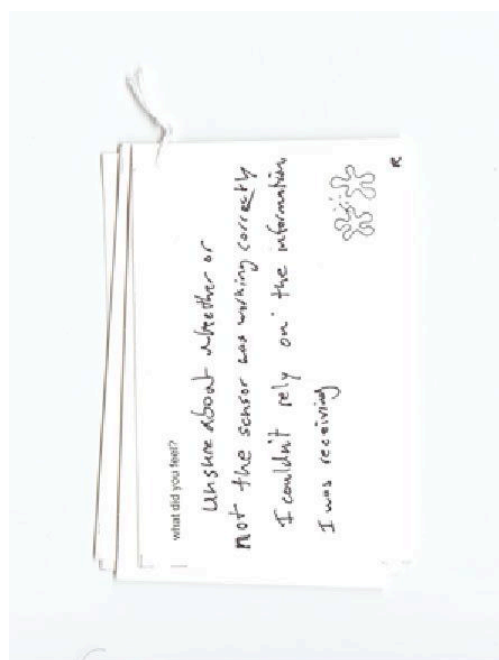 what did you feel?
Unsure about whether or
not the sensor was working correctly
I couldn't rely on the information
I was receiving